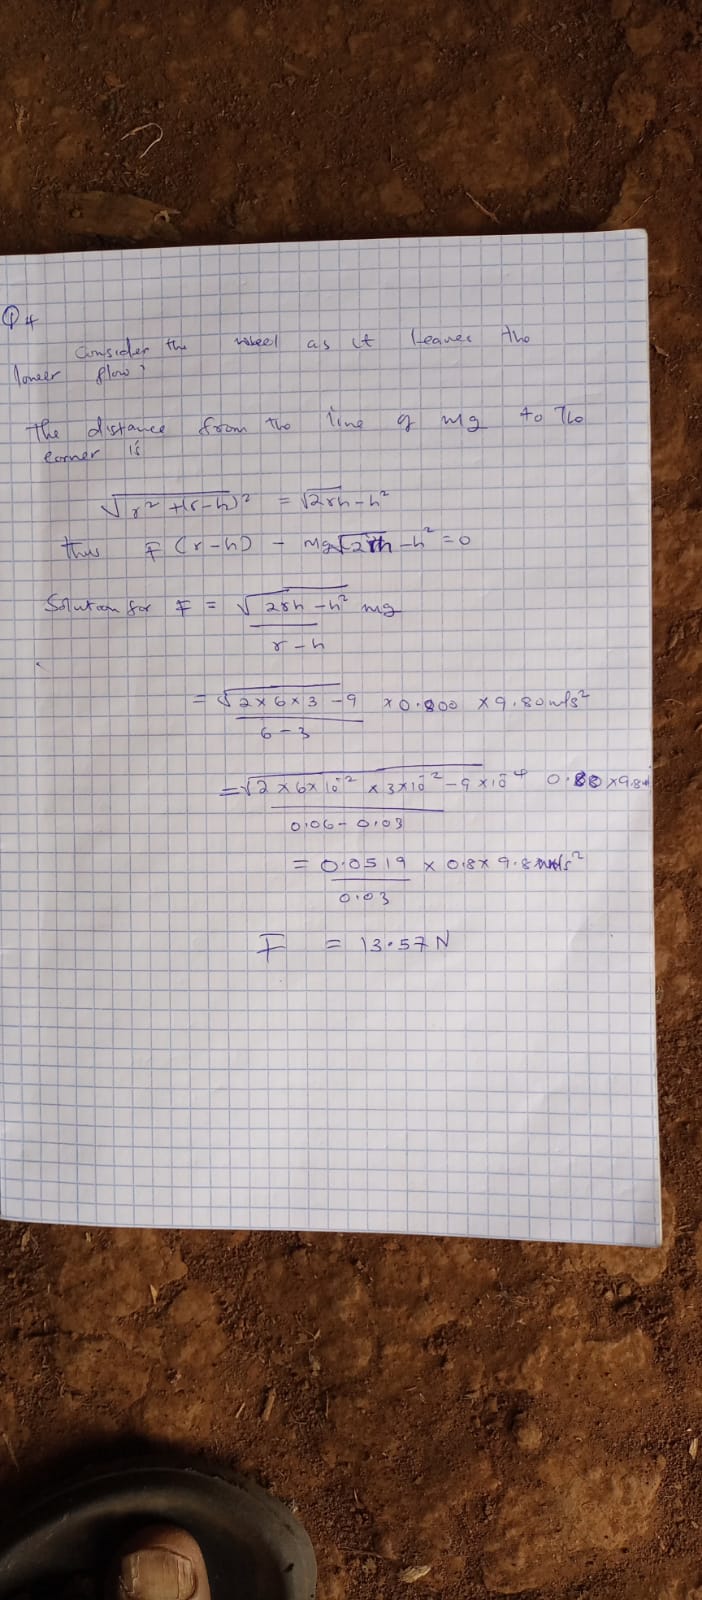 Q4
Consider the wheel as it leaves the
lower flow?
The distance from the line of mg to the
corner is
√r² +(r-h)² = √2rh-h²
thus F (r-h) - mg√2rh-h² = 0
Solution for F = √2rh-h² mg
r-h
= √2×6×3-9 × 0.800 × 9.80m/s²
6-3
= √2×6×10⁻² × 3×10⁻² - 9×10⁻⁴ 0.80 ×9.8
0.06-0.03
= 0.0519 × 0.8 × 9.8 m/s²
0.03
F = 13.57N